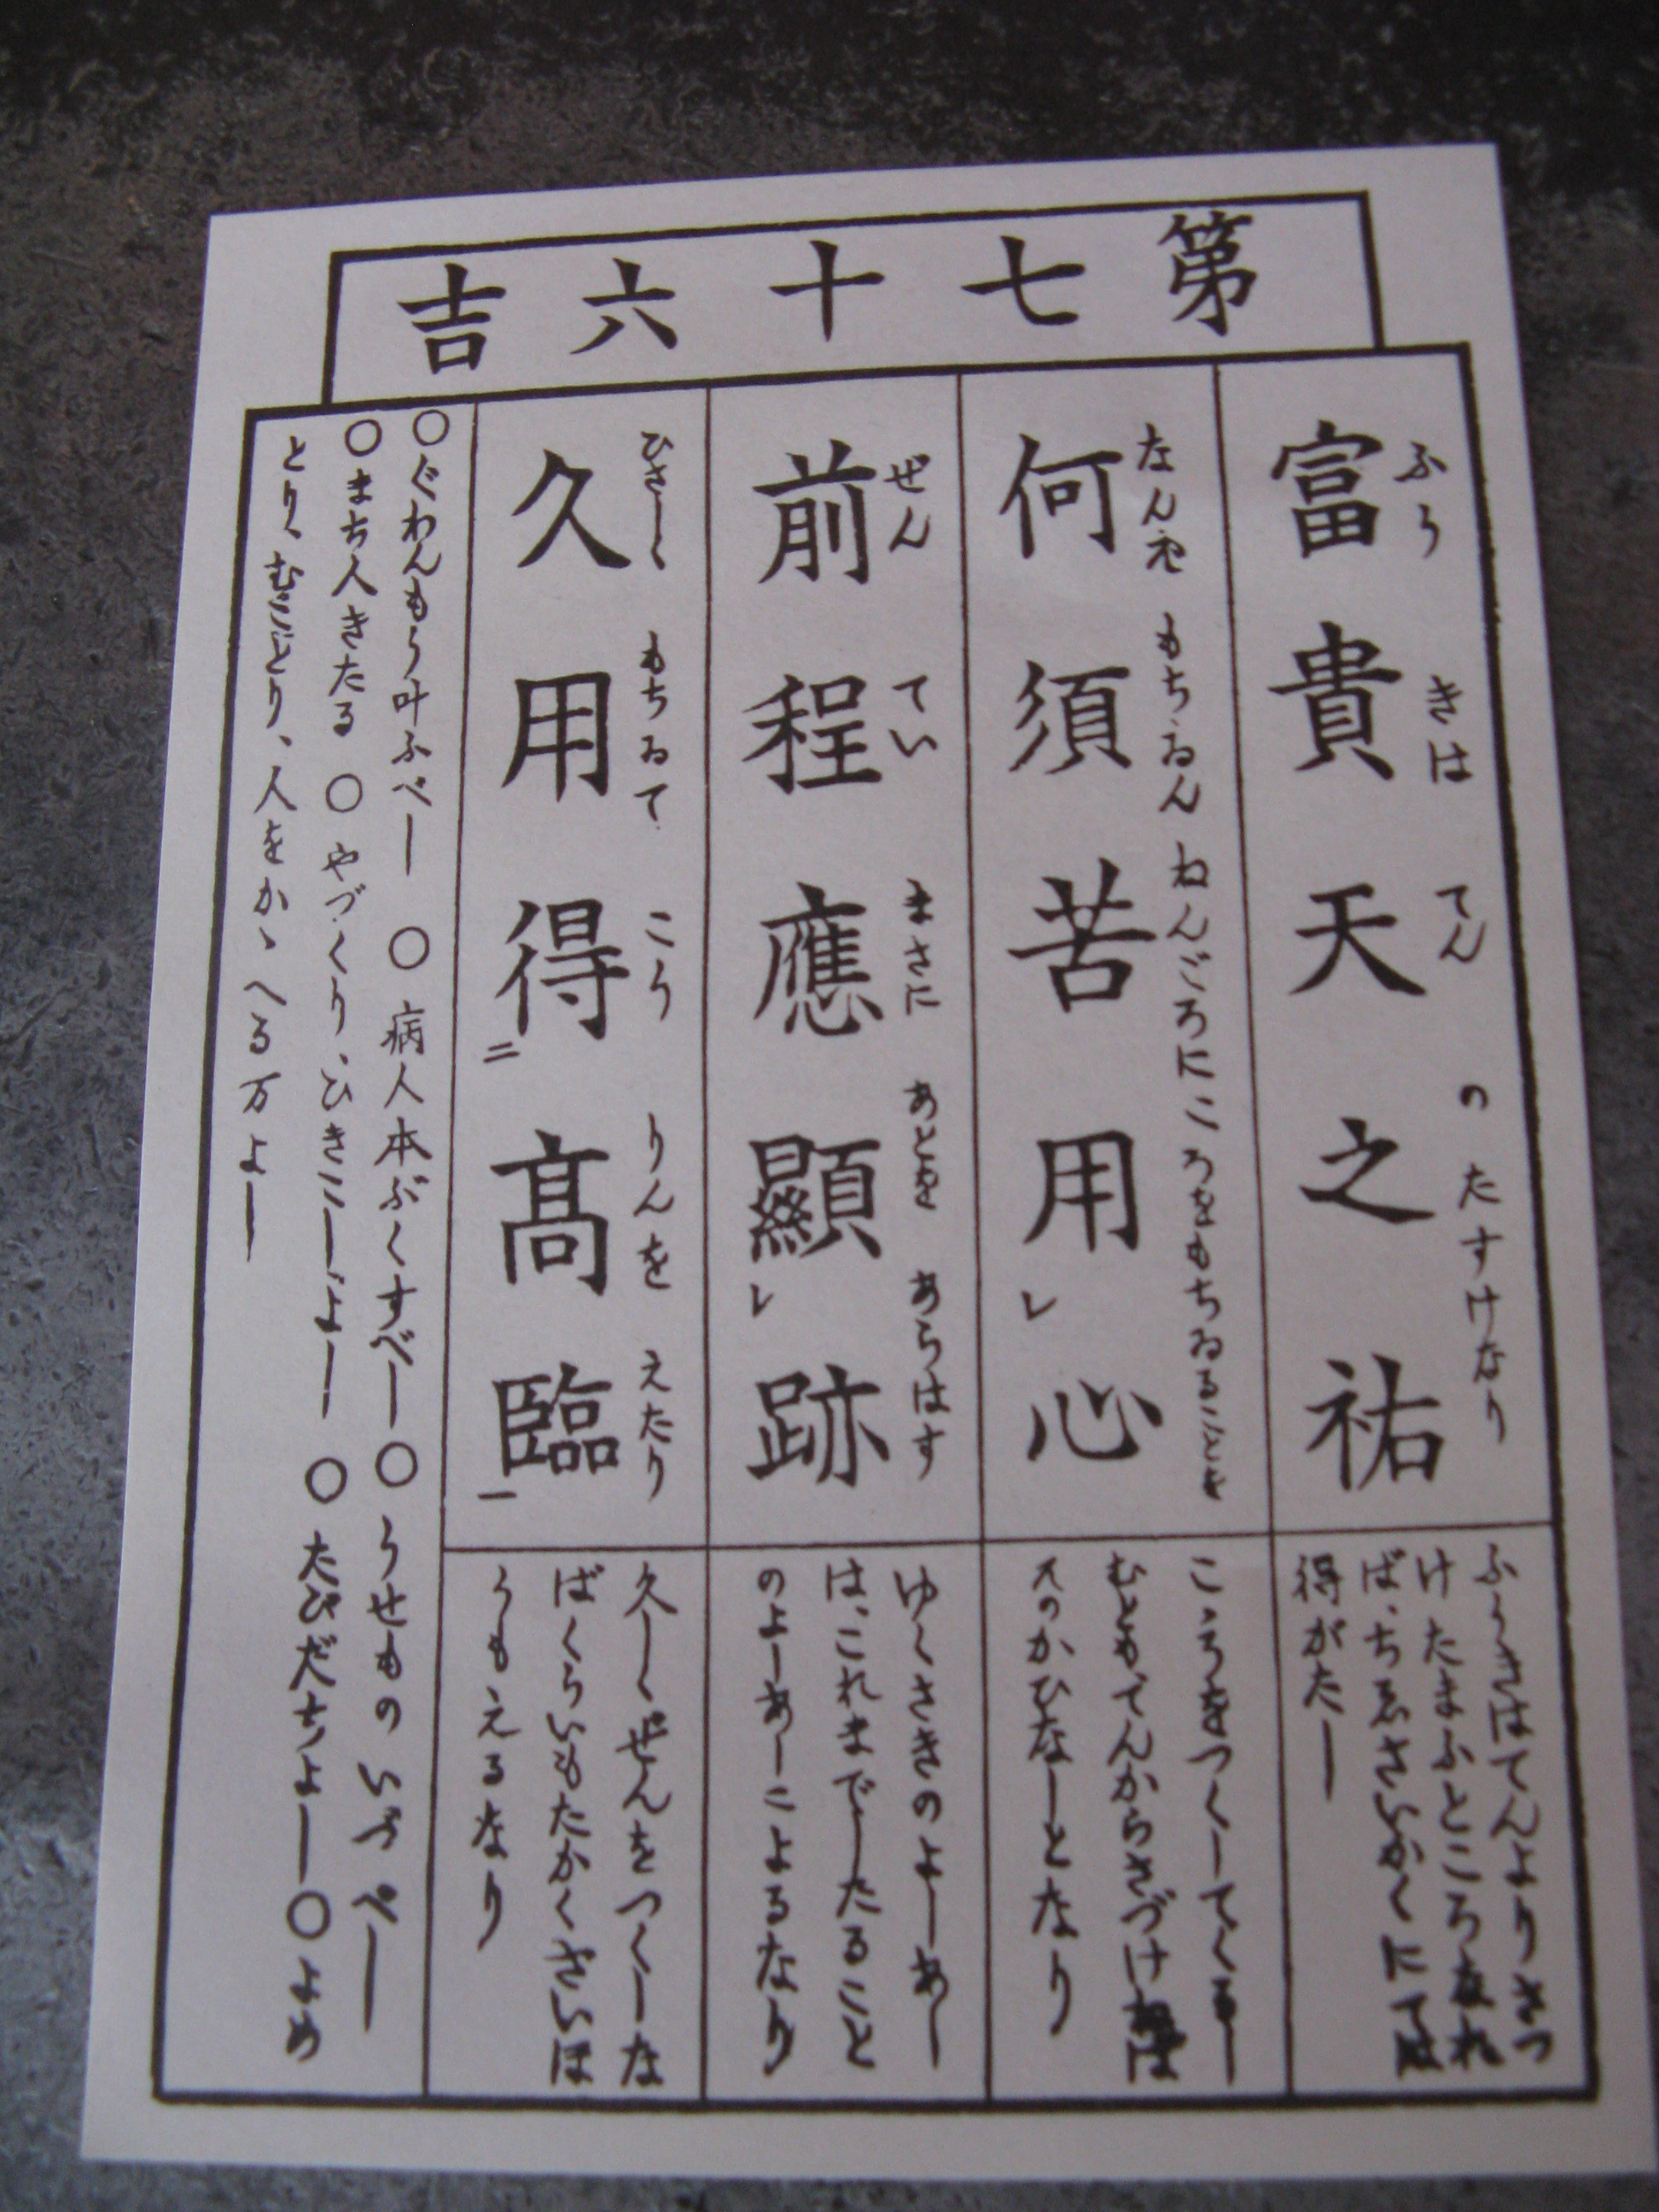 第七十六吉
富貴天之祐
ふうきはてんのたすけなり
何須苦用心
なんぞもちゐんねんごろにこころをもちゐることを
前程應顯跡
ぜんていまさにあとをあらはす
久用得高臨
ひさしくもちゐてこうりんをえたり
ふうきはてんよりさづ
けたまふところなれ
ば、ちゑさいかくにては
得がたし
こころをつくしてくるし
むともてんからさづけねば
そのかひなしとなり
ゆくさきのよしあし
は、これまでしたること
のよしあしによるなり
久しくぜんをつくしな
ばくらいもたかくさいは
うもえるなり
○ぐわんもう叶ふべし ○病人本ぶくすべし ○うせもの いづべし
○まち人きたる ○やづくり、ひきこしよし ○たびだちよし ○よめ
とり、むことり、人をかゝへる万よし